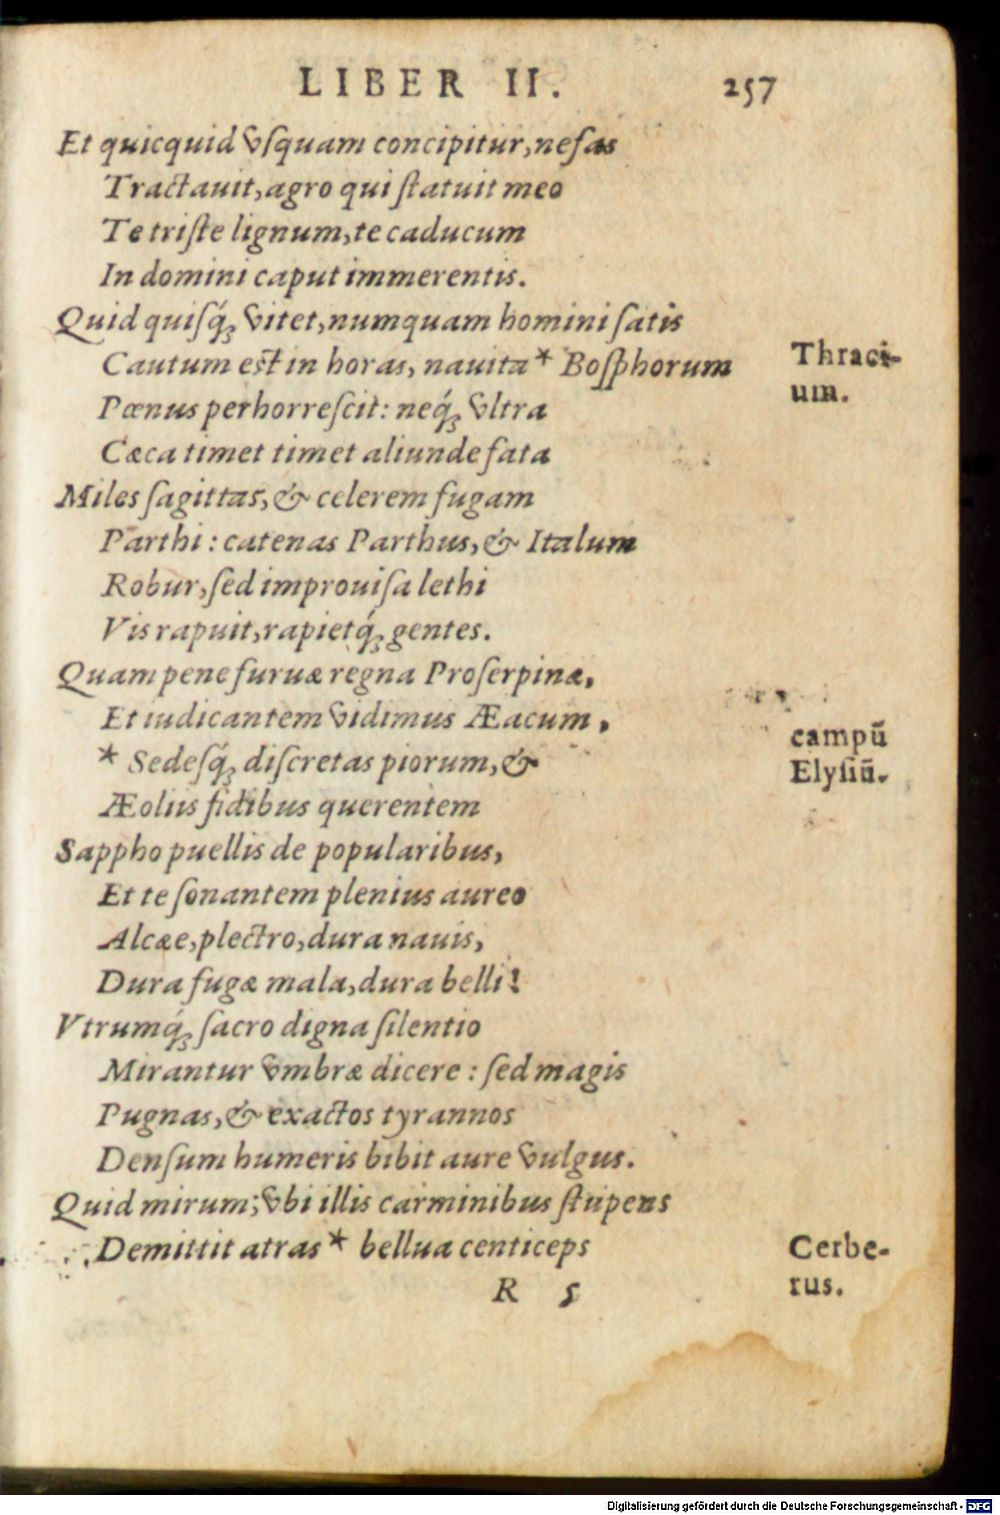 LIBER II. 257
Et quicquid vſquam concipitur, nefas
Tractauit, agro qui ſtatuit meo
Te triſte lignum, te caducum
In domini caput immerentis.
Quid quiſq́; vitet, numquam homini ſatis
Cautum est in horas, nauita * Boſphorum
Thraci-
Pœnus perhorreſcit: neq́; vltra
um.
Cæca timet timet aliunde fata
Miles ſagittas, & celerem fugam
Parthi: catenas Parthus, & Italum
Robur, ſed improuiſa lethi
Vis rapuit, rapietq́; gentes.
Quam pene furuæ regna Proſerpinæ,
Et iudicantem vidimus Æacum,
campũ
* Sedeſq́; diſcretas piorum, &
Elyſiũ.
Æoliis fidibus querentem
Sappho puellis de popularibus,
Et te ſonantem plenius aureo
Alcæe, plectro, dura nauis,
Dura fugæ mala, dura belli!
Vtrumq́; ſacro digna ſilentio
Mirantur vmbræ dicere: ſed magis
Pugnas, & exactos tyrannos
Denſum humeris bibit aure vulgus.
Quid mirum; vbi illis carminibus ſtupens
Demittit atras * bellua centiceps
Cerbe-
rus.
R 5
Digitalisierung gefördert durch die Deutsche Forschungsgemeinschaft - DFG